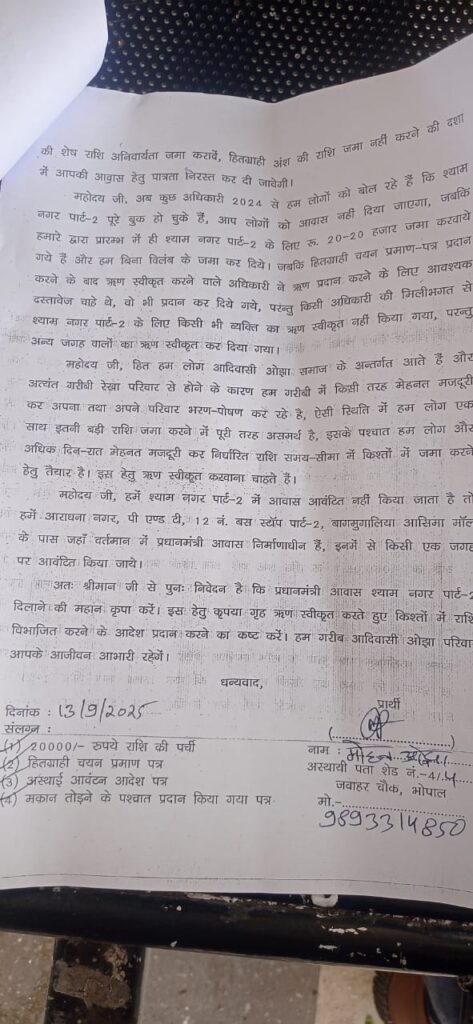 की शेष राशि अनिवार्यता जमा करावें, हितग्राही अंश की राशि जमा नहीं करने की दशा
में आपकी आवास हेतु पात्रता निरस्त कर दी जावेगी।
महोदय जी, अब कुछ अधिकारी 2024 से हम लोगों को बोल रहे हैं कि श्याम
नगर पार्ट-2 पूरे बुक हो चुके हैं, आप लोगों को आवास नहीं दिया जाएगा, जबकि
हमारे द्वारा प्रारम्भ में ही श्याम नगर पार्ट-2 के लिए रू. 20-20 हजार जमा करवाये
गये हैं और हम बिना विलंब के जमा कर दिये। जबकि हितग्राही चयन प्रमाण-पत्र प्रदाय
करने के बाद ऋण स्वीकृत करने वाले अधिकारी ने ऋण प्रदान करने के लिए आवश्यक
दस्तावेज चाहे थे, वो भी प्रदान कर दिये गये, परंन्तु किसी अधिकारी की मिलीभगत से
श्याम नगर पार्ट-2 के लिए किसी भी व्यक्ति का ऋण स्वीकृत नहीं किया गया, परन्तु
अन्य जगह वालों का ऋण स्वीकृत कर दिया गया।
महोदय जी, हित हम लोग आदिवासी ओझा समाज के अन्तर्गत आते हैं और
अत्यंत गरीबी रेखा परिवार से होने के कारण हम गरीबी में किसी तरह मेहनत मजदूरी
कर अपना तथा अपने परिवार भरण-पोषण कर रहे है, ऐसी स्थिति में हम लोग एक
साथ इतनी बड़ी राशि जमा करने में पूरी तरह असमर्थ है, इसके पश्चात हम लोग और
अधिक दिन-रात मेहनत मजदूरी कर निर्धारित राशि समय-सीमा में किश्तों में जमा करने
हेतु तैयार है। इस हेतु ऋण स्वीकृत करवाना चाहते हैं।
महोदय जी, हमें श्याम नगर पार्ट-2 में आवास आवंटित नहीं किया जाता है तो
हमें आराधना नगर, पी एण्ड टी, 12 नं. बस स्टॉप पार्ट-2, बागसुगालिया आसिमा मॉल
के पास जहाँ वर्तमान में प्रधानमंत्री आवास निर्माणाधीन हैं, इनमें से किसी एक जगह
पर आवंटित किया जाये।
अतः श्रीमान जी से पुनः निवेदन है कि प्रधानमंत्री आवास श्याम नगर पार्ट-2
दिलाने की महान कृपा करें। इस हेतु कृपया गृह ऋण स्वीकृत करते हुए किश्तों में राशि
विभाजित करने के आदेश प्रदान करने का कष्ट करें। हम गरीब आदिवासी ओझा परिवा
आपके आजीवन आभारी रहेगें।
धन्यवाद,
दिनांक : 13/9/2025
प्रार्थी
संलग्न :
(....................)
(1) 20000/- रुपये राशि की पर्ची
नाम : मोहन ओझा
(2) हितग्राही चयन प्रमाण पत्र
अस्थायी पता शेड नं.-4/
(3) अस्थाई आवंटन आदेश पत्र
जवाहर चौक, भोपाल
(4) मकान तोड़ने के पश्चात प्रदान किया गया पत्र
मो.-
9893314850